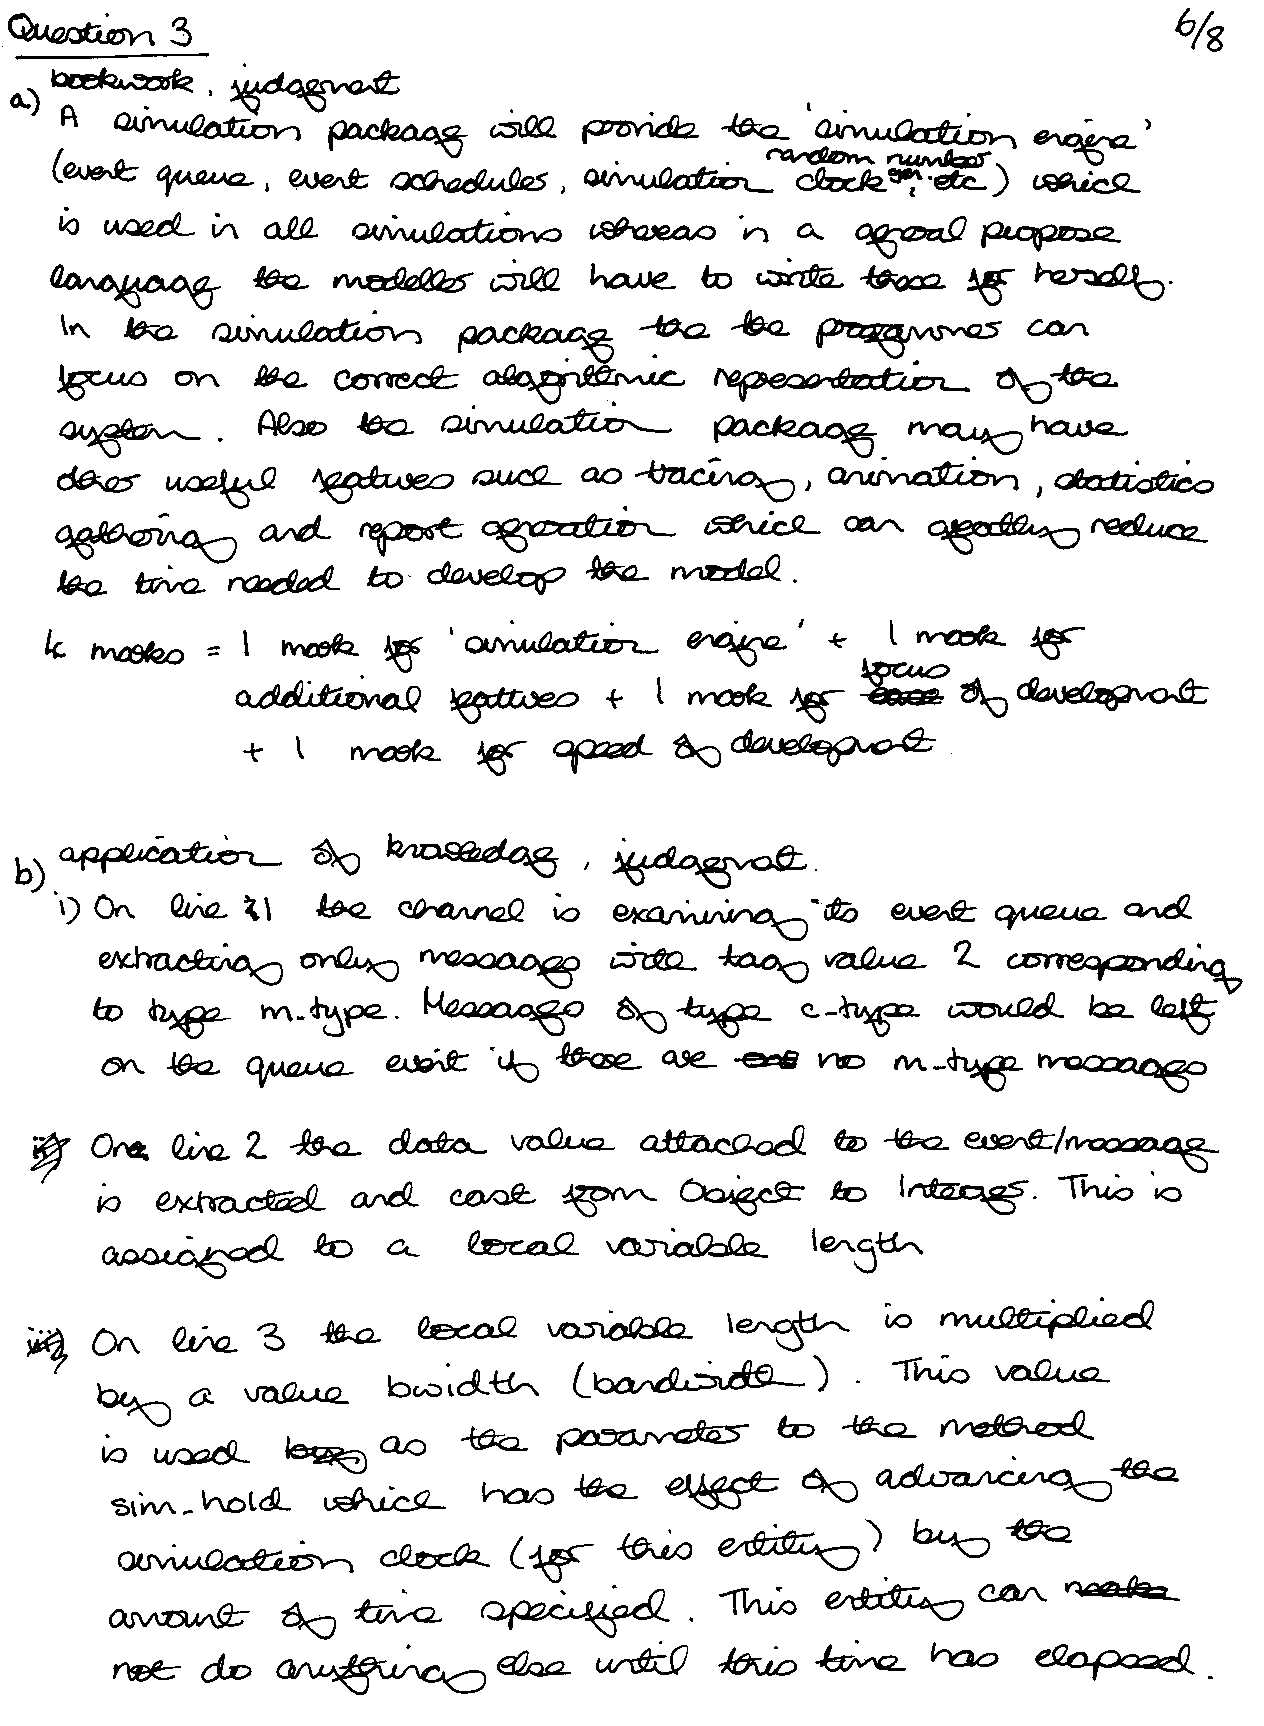 Question 3
6/8
bookwork, judgment
a) A simulation package will provide the 'simulation engine'
(event queue, event schedules, simulation clock, random number gen. etc) which
is used in all simulations whereas in a general propose
language the modeller will have to write these for herself.
In the simulation package the the programmer can
focus on the correct algorithmic representation of the
system. Also the simulation package may have
other useful features such as tracing, animation, statistics
gathering and report generation which can greatly reduce
the time needed to develop the model.
4 marks = 1 mark for 'simulation engine' + 1 mark for
additional features + 1 mark for focus of development
+ 1 mark for speed of development
b) application of knowledge, judgment.
i) On line 1 the channel is examining its event queue and
extracting only messages with tag value 2 corresponding
to type m-type. Messages of type c-type would be left
on the queue event if there are no m-type messages
ii) On line 2 the data value attached to the event/message
is extracted and cast from Object to Integer. This is
assigned to a local variable length
iii) On line 3 the local variable length is multiplied
by a value bwidth (bandwidth). This value
is used as the parameter to the method
sim-hold which has the effect of advancing the
simulation clock (for this entity) by the
amount of time specified. This entity can
not do anything else until this time has elapsed.